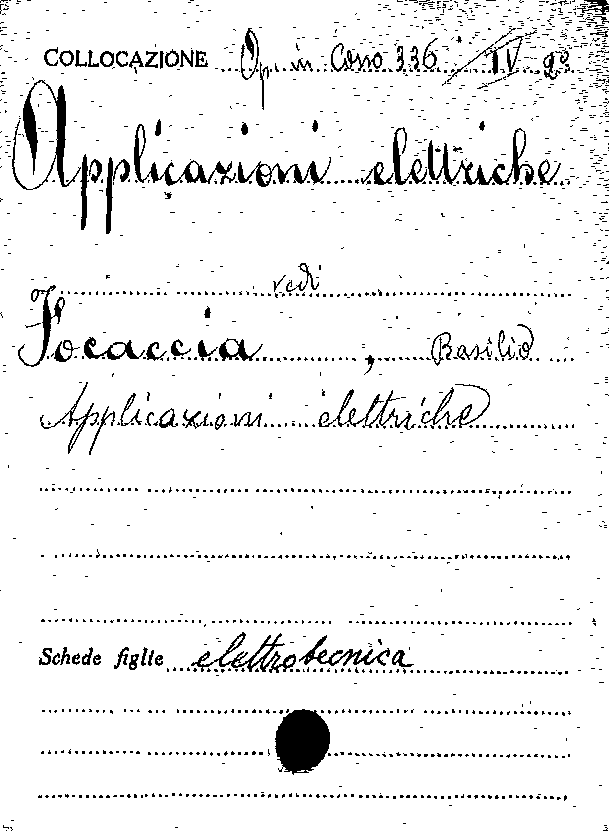 COLLOCAZIONE Op. in Cono 336 / IV 2º
Applicazioni elettriche
vedi
Focaccia, Basilio
Applicazioni elettriche
Schede figlie elettrotecnica